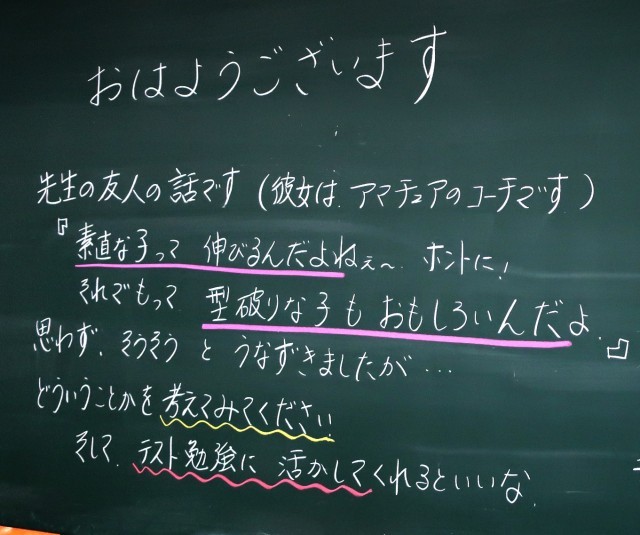 おはようございます
先生の友人の話です（彼女は、アマチュアのコーチです）
『素直な子って 伸びるんだよねぇ〜 ホントに！
それでもって 型破りな子も おもしろいんだよ。』
思わず、そうそう と うなずきましたが…
どういうことかを 考えてみてください
そして、テスト勉強に 活かしてくれるといいな。